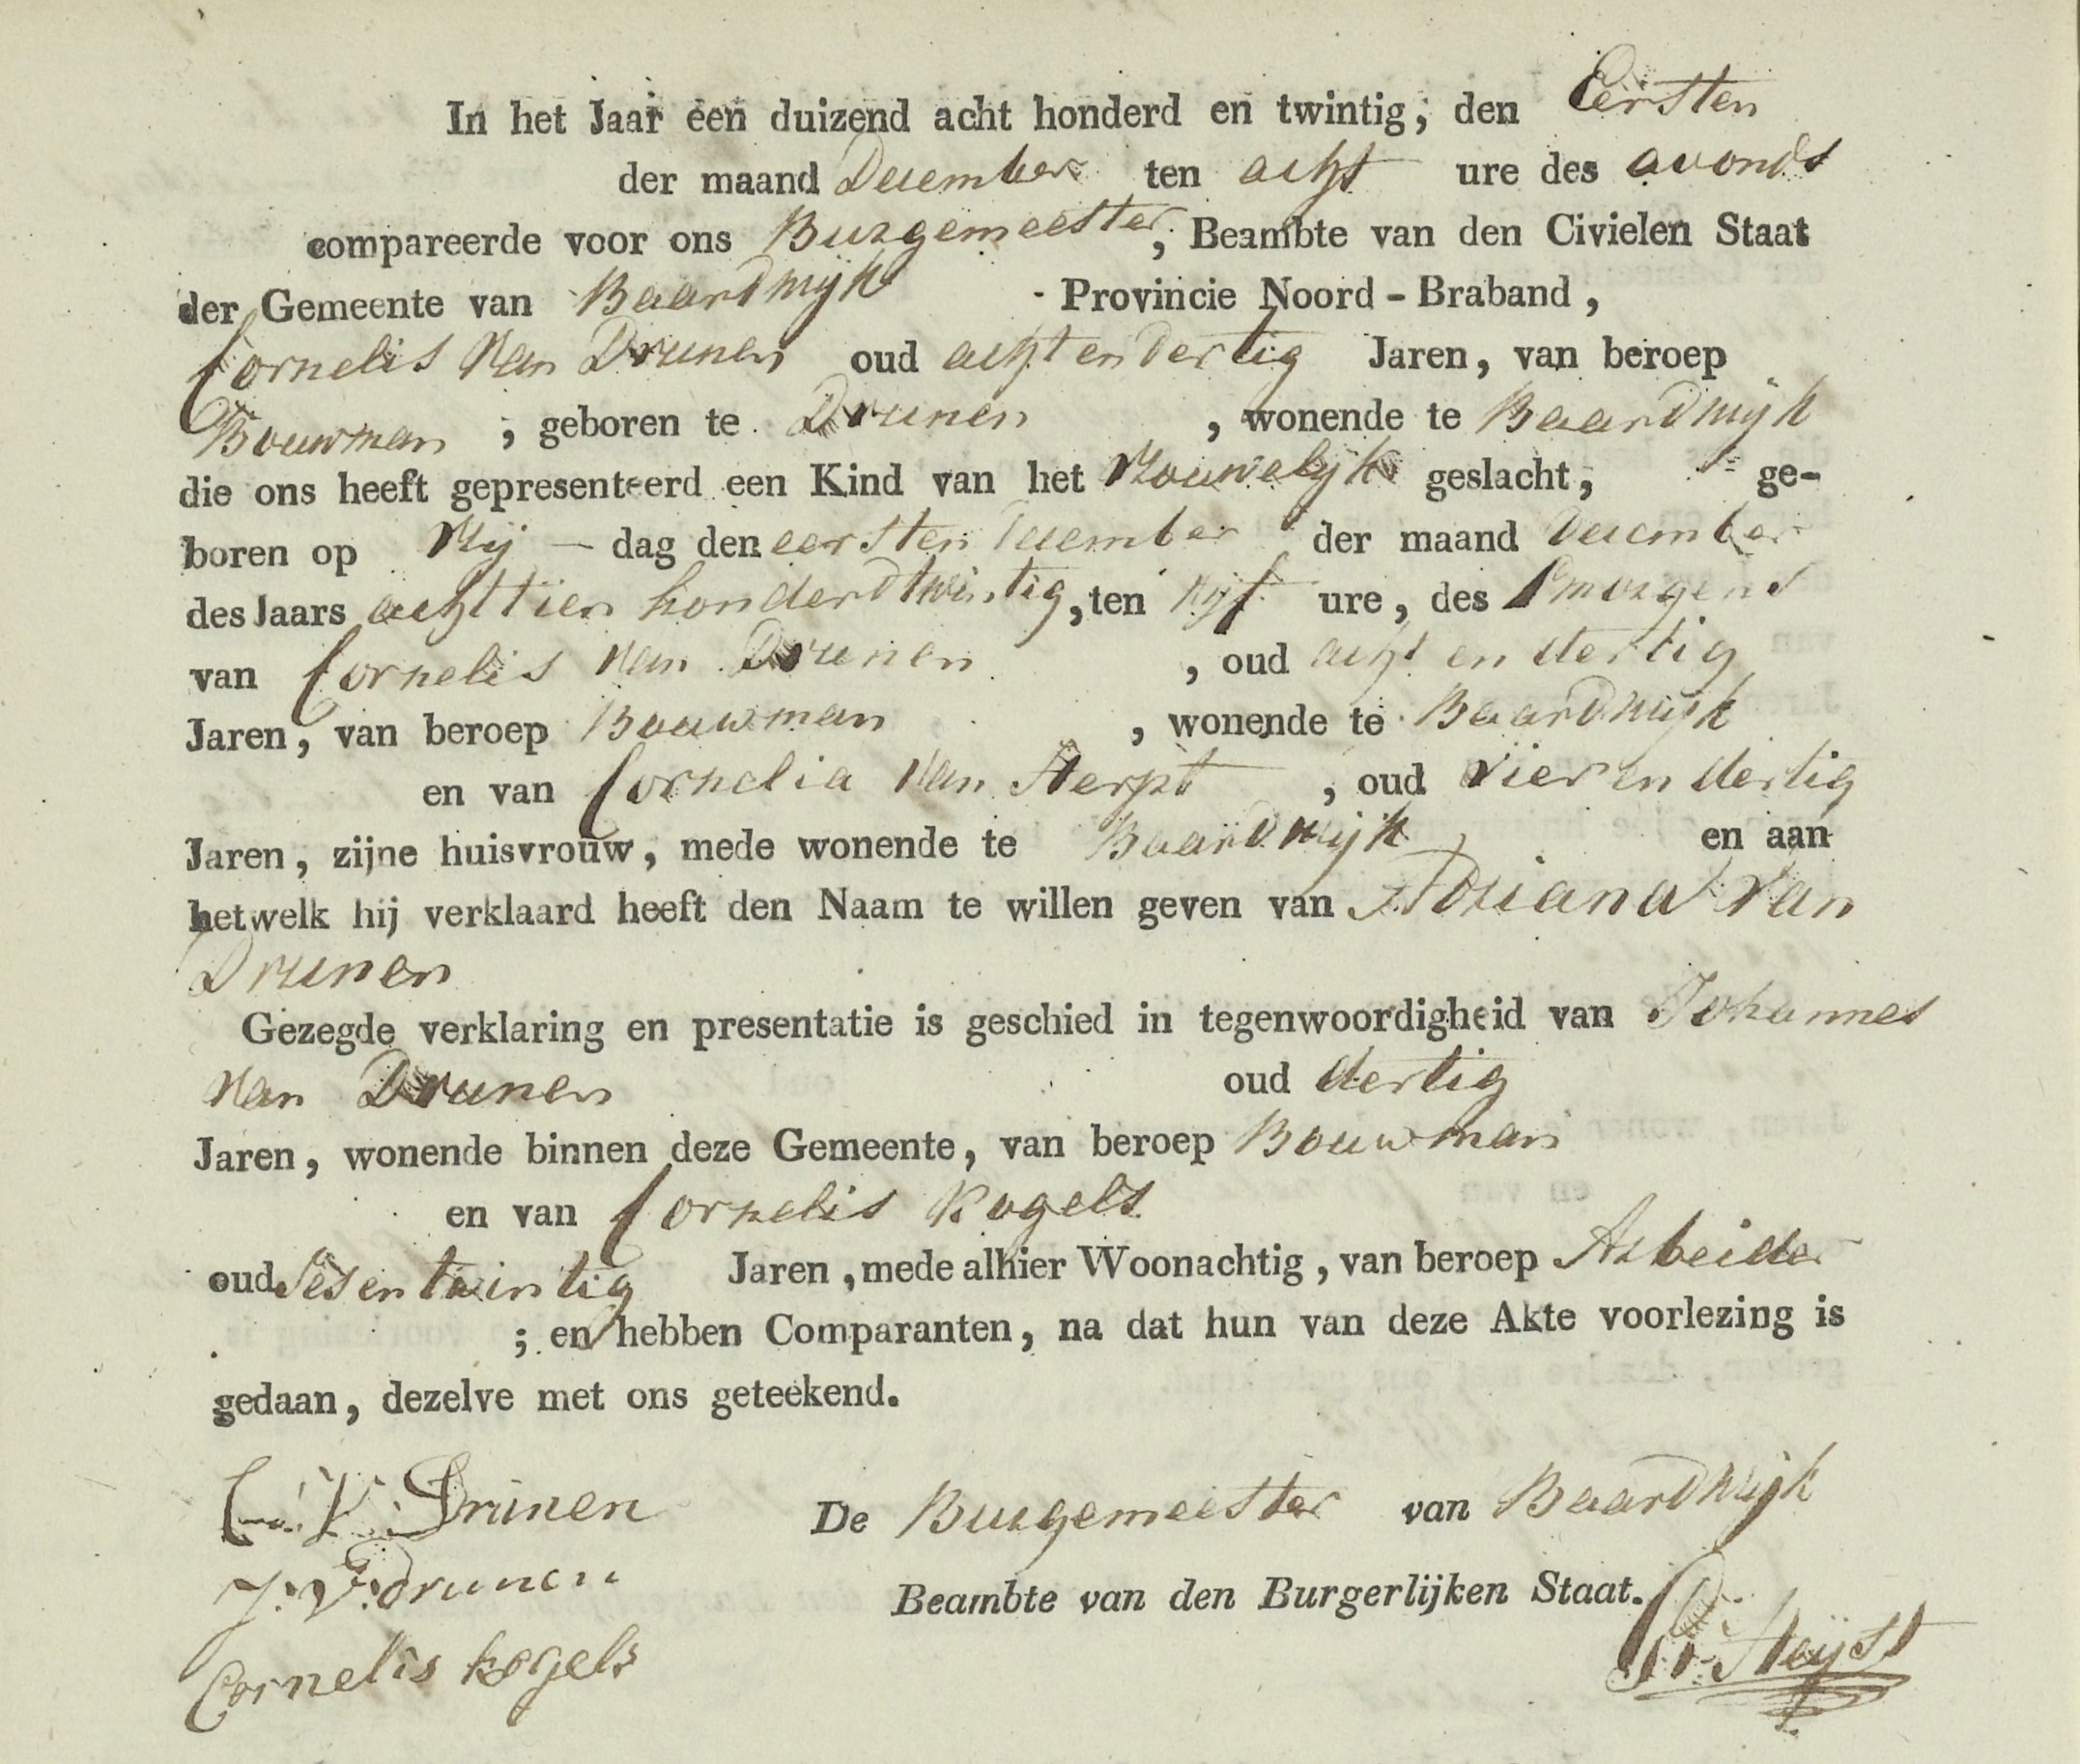 In het Jaar een duizend acht honderd en twintig, den Eersten
der maand December ten acht ure des avonds
compareerde voor ons Burgemeester, Beambte van den Civielen Staat
der Gemeente van Baardwijk Provincie Noord-Braband,
Cornelis van Drunen oud acht en dertig Jaren, van beroep
Bouwman, geboren te Drunen, wonende te Baardwijk
die ons heeft gepresenteerd een Kind van het vrouwelijk geslacht, ge-
boren op vrij - dag den eersten December der maand December
des Jaars achttien honderd twintig, ten vijf ure, des smorgens
van Cornelis van Drunen, oud acht en dertig
Jaren, van beroep Bouwman, wonende te Baardwijk
en van Cornelia van Herpt, oud vier en dertig
Jaren, zijne huisvrouw, mede wonende te Baardwijk en aan
hetwelk hij verklaard heeft den Naam te willen geven van Adriana van
Drunen
Gezegde verklaring en presentatie is geschied in tegenwoordigheid van Johannes
van Drunen oud dertig
Jaren, wonende binnen deze Gemeente, van beroep Bouwman
en van Cornelis Kogels
oud sesentwintig Jaren, mede alhier Woonachtig, van beroep Arbeider
; en hebben Comparanten, na dat hun van deze Akte voorlezing is
gedaan, dezelve met ons geteekend.
V. Drunen De Burgemeester van Baardwijk
J: V: Drunen
Beambte van den Burgerlijken Staat.
Cornelis kogels